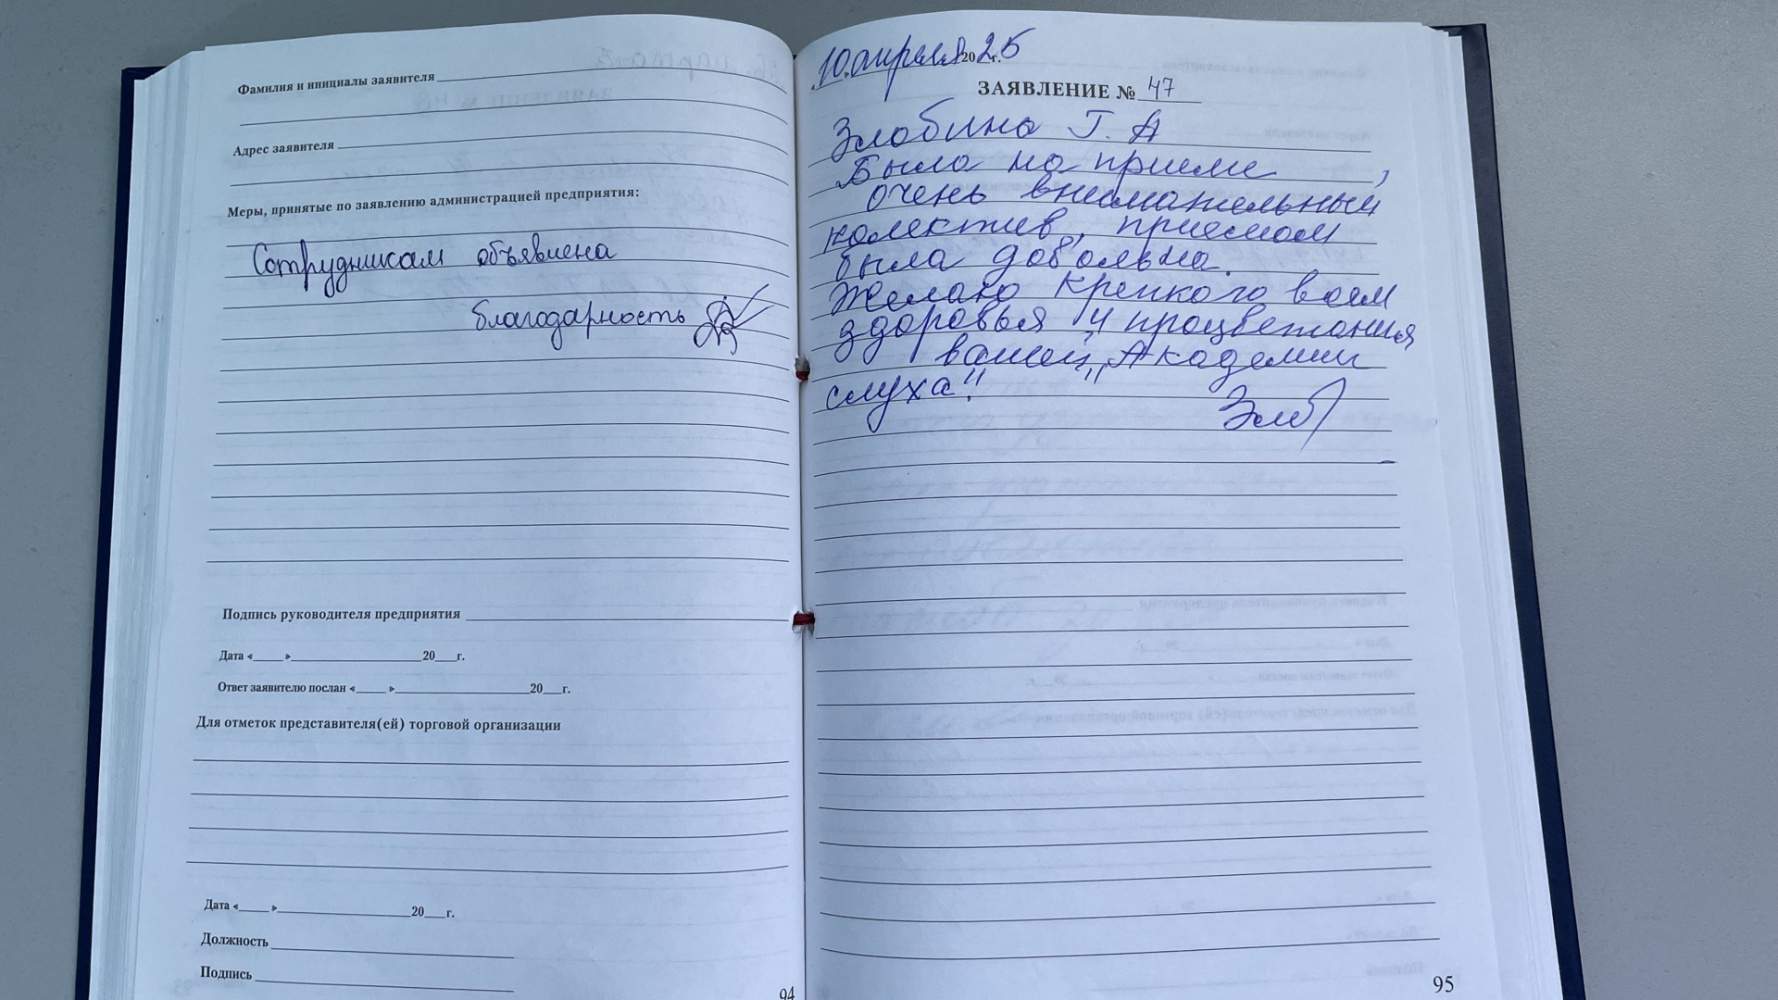 Фамилия и инициалы заявителя
Адрес заявителя
Меры, принятые по заявлению администрацией предприятия:
Сотрудникам объявлена
благодарность
Подпись руководителя предприятия
Дата «____»____________20___г.
Ответ заявителю послан «____»____________20___г.
Для отметок представителя(ей) торговой организации
Дата «____»____________20___г.
Должность
Подпись
94
10.апреля 2025 г.
ЗАЯВЛЕНИЕ № 47
Злобина Г. А
Была на приеме,
очень внимательный
колектив, приемом
была довольна.
Желаю крепкого всем
здоровья и процветания
вашей „Академии
слуха"!
Злоб
95